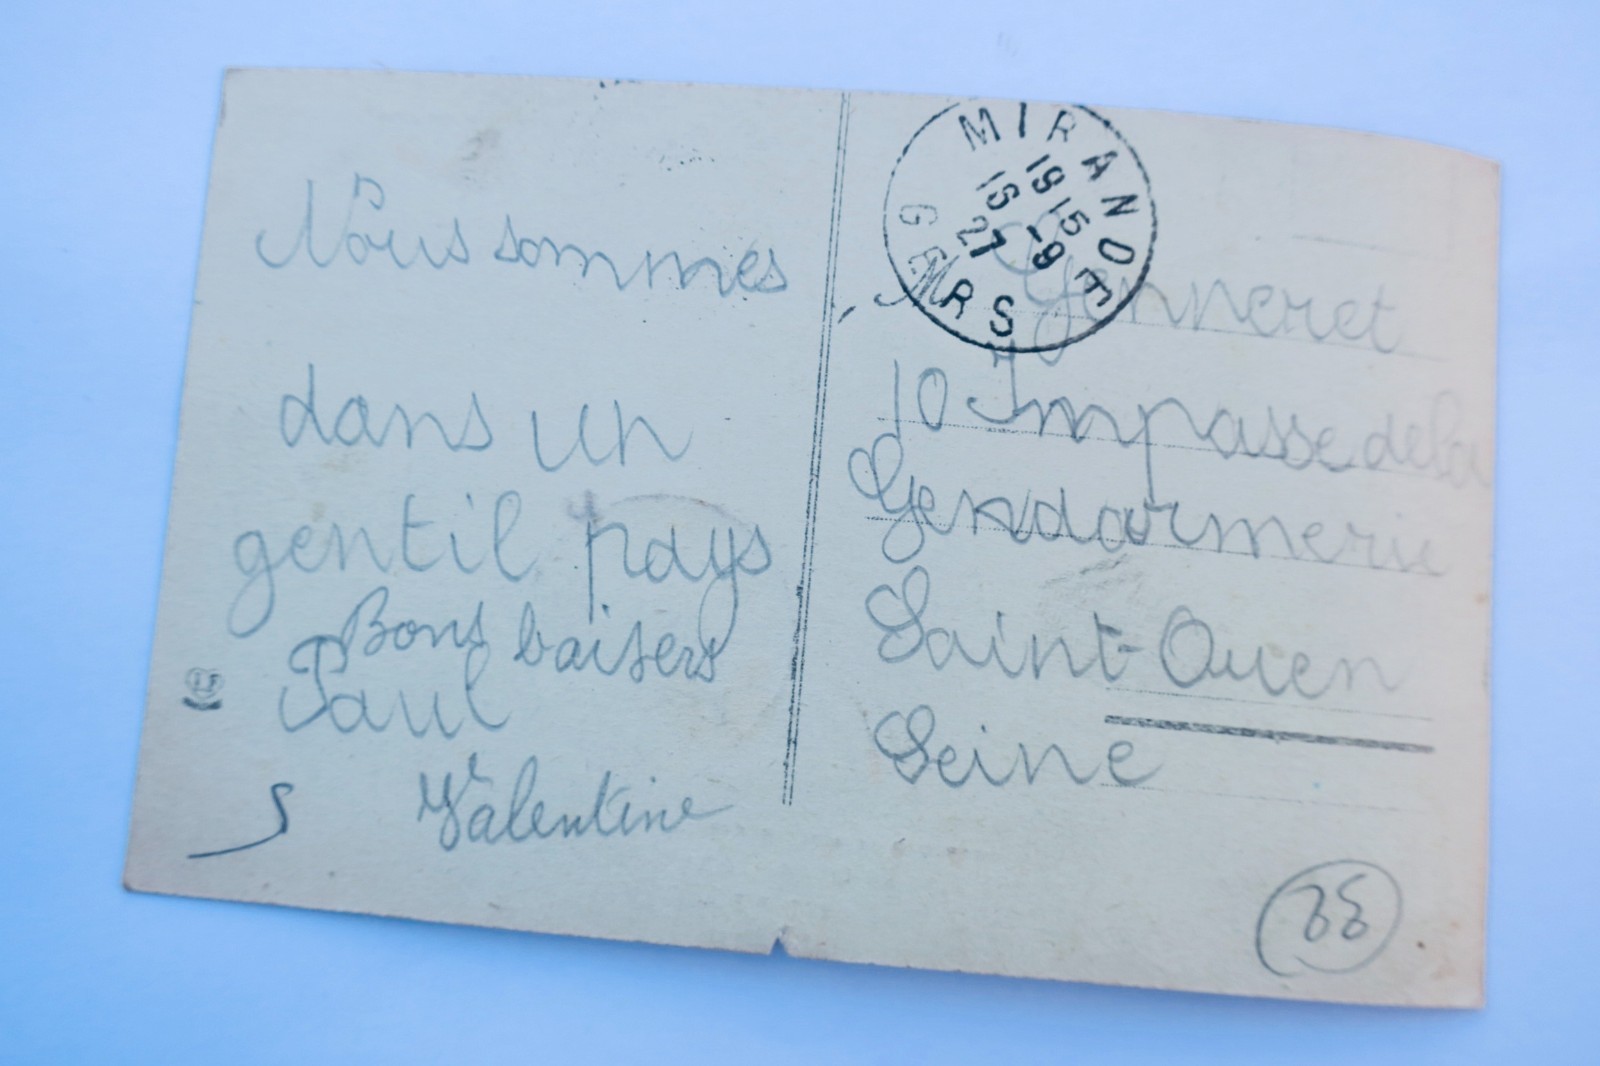 Nous sommes
dans un
gentil pays
Bons baisers
Paul
Valentine
MIRANDE
1915
15 -9
27
GERS
M Genneret
10 Impasse de la
Gendarmerie
Saint-Ouen
Seine